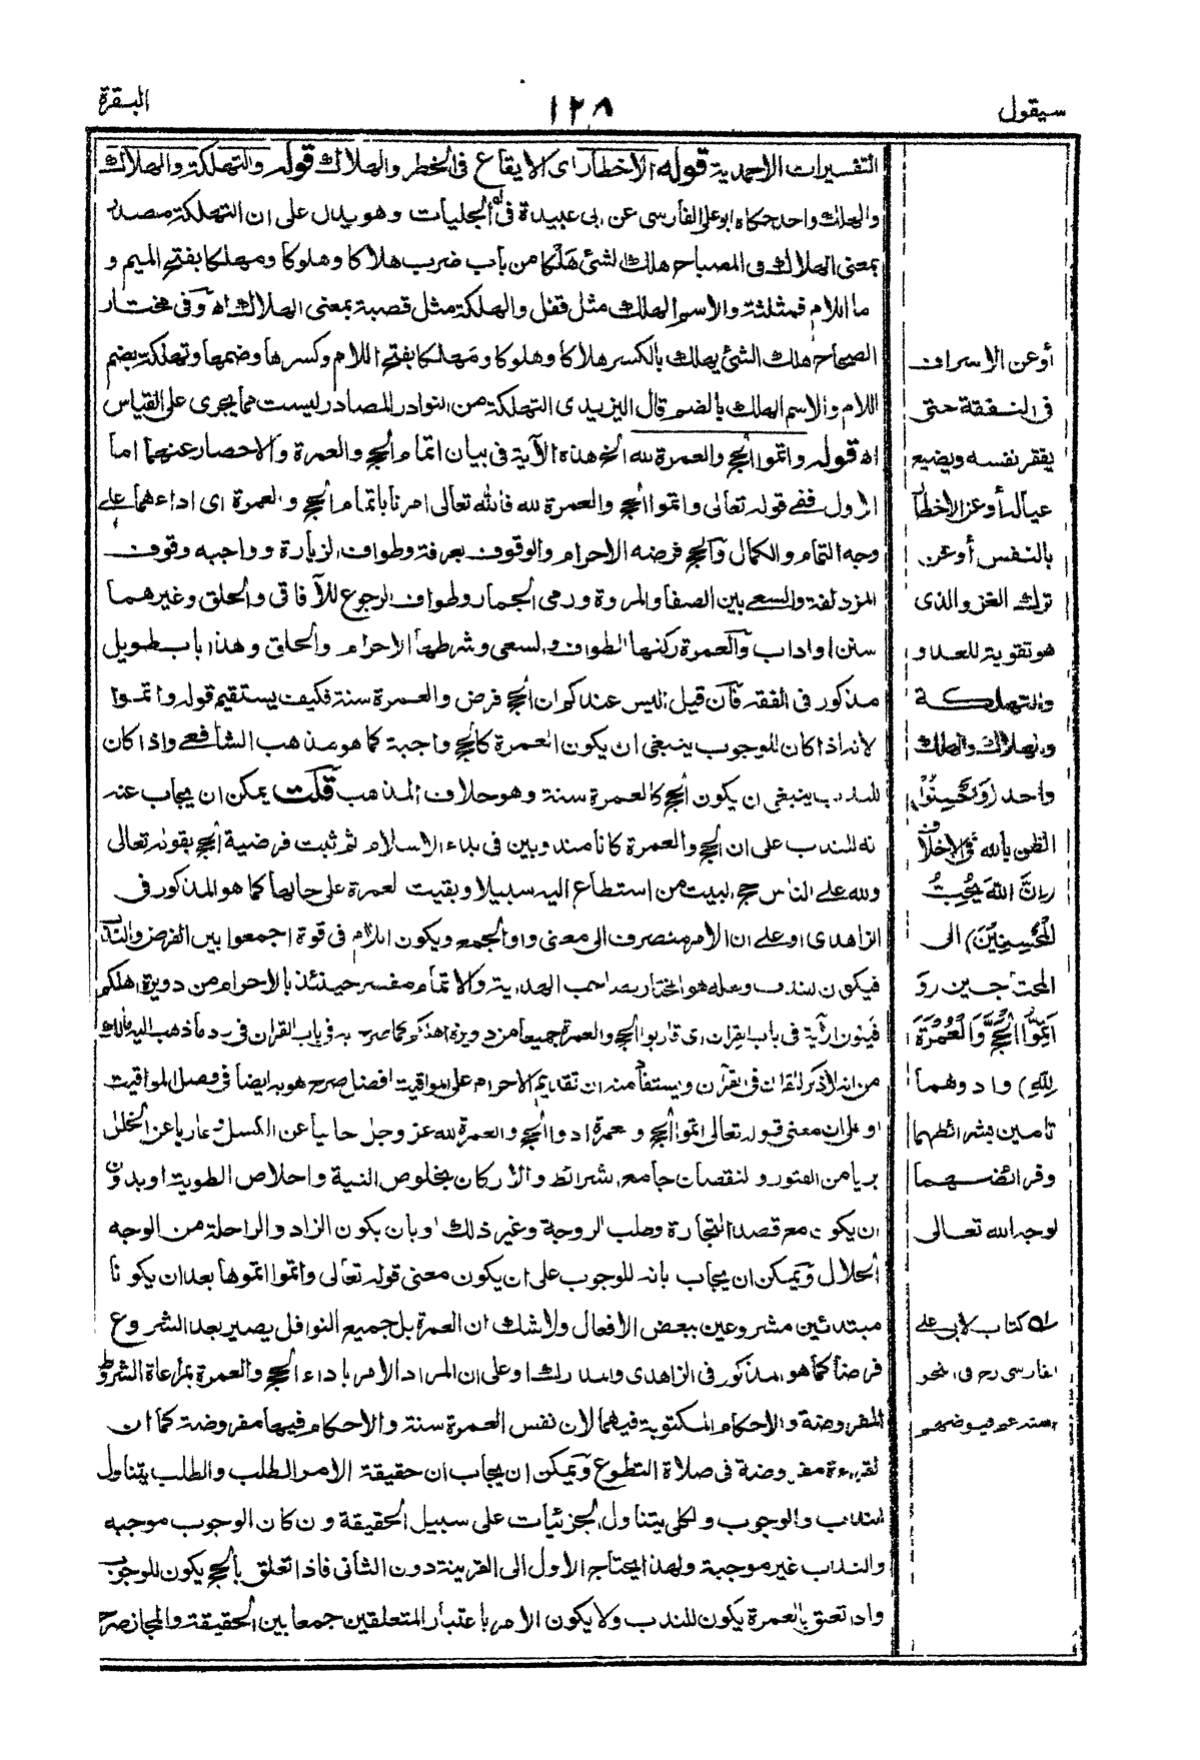 سيقول
١٢٨
البقرة
التفسيرات الاحمدية قوله الاخطار اى الايقاع فى الخطر والهلاك قوله والتهلكة والهلاك
والهلك واحد حكاه ابو على الفارسى عن ابى عبيدة فى الحلبيات وهو يدل على ان التهلكة مصدر
بمعنى الهلاك وفى المصباح هلك الشئ هَلْكا من باب ضرب هلاكا وهلوكا ومهلكا بفتح الميم و
ما اللام فمثلثة والاسم الهلك مثل قفل والهلكة مثل قصبة بمعنى الهلاك اه وفى مختار
الصحاح هلك الشئ يهلك بالكسر هلاكا وهلوكا ومَهلكا بفتح اللام وكسرها وضمها وتهلكة بضم
اللام والاسم الهلك بالضم قال اليزيدى التهلكة من النوادر المصادر ليست مما يجرى على القياس
اه قوله واتموا الحج والعمرة لله الخ هذه الآية فى بيان اتمام الحج والعمرة والاحصار عنهما اما
الاول ففى قوله تعالى واتموا الحج والعمرة لله فالله تعالى امرنا باتمام الحج والعمرة اى اداءهما على
وجه التمام والكمال والحج فرضه الاحرام والوقوف بعرفة وطواف الزيارة وواجبه وقوف
المزدلفة والسعى بين الصفا والمروة ورمى الجمار وطواف الرجوع للآفاقى والحلق وغيرهما
سنن او اداب والعمرة ركنها الطواف والسعى وشرطها الاحرام والحلق وهذا باب طويل
مذكور فى الفقه فان قيل اليس عندكم ان الحج فرض والعمرة سنة فكيف يستقيم قوله واتموا
لانه اذا كان للوجوب ينبغى ان يكون العمرة كالحج واجبة كما هو مذهب الشافعى واذا كان
للندب ينبغى ان يكون الحج كالعمرة سنة وهو خلاف المذهب قلت يمكن ان يجاب عنه
نه للندب على ان الحج والعمرة كانا مندوبين فى بداء الاسلام ثم ثبت فرضية الحج بقوله تعالى
ولله على الناس حج البيت من استطاع اليه سبيلا وبقيت لعمرة على حالها كما هو المذكور فى
الزاهدى او على ان الامر منصرف الى معنى واو الجمع ويكون الكلام فى قوة اجمعوا بين الفرض والندب
فيكون للندب وعله هو المختار بعد صاحب الهداية والاتمام مفسر حينئذ بالاحرام من دويرة اهلكم
فيكون الآية فى باب القران اى قاربوا الحج والعمرة جميعا من دويرة اهلكم كما صرح به فى باب القران فى رد ما ذهب اليه مالك
من انه لا ذكر للقران فى القرآن ويستفاد منه ان تقديم الاحرام على المواقيت افضل صرح هو به ايضا فى فصل المواقيت
او على ان معنى قوله تعالى اتموا الحج والعمرة ادوا الحج والعمرة لله عز وجل خاليا عن الكسل وعاريا عن الخلل
بريا من الفتور والنقصان جامع شرائط والاركان بخلوص النية واخلاص الطوية او بدون
ان يكون مع قصد التجارة وطلب الروجة وغير ذلك او بان يكون الزاد والراحلة من الوجه
الحلال ويمكن ان يجاب بانه للوجوب على ان يكون معنى قوله تعالى واتموا اتموها بعد ان يكونا
مبتدئين مشروعين ببعض الافعال ولا شك ان العمرة بل جميع النوافل يصير بعد الشروع
فرضا كما هو مذكور فى الزاهدى والمدارك او على ان المراد الامر باداء الحج والعمرة بمراعاة الشروط
المفروضة والاحكام المكتوبة فيهما لان نفس العمرة سنة والاحكام فيها مفروضة كما ان
لقراءة مفروضة فى صلاة التطوع ويمكن ان يجاب ان حقيقة الامر الطلب والطلب يتناول
الندب والوجوب والكلى يتناول الجزئيات على سبيل الحقيقة وان كان الوجوب موجبه
والندب غير موجبة ولهذا يحتاج الاول الى القرينة دون الثانى فاذا تعلق بالحج يكون للوجوب
واذا تعلق بالعمرة يكون للندب ولا يكون الامر باعتبار المتعلقين جمعا بين الحقيقة والمجاز صرح
أو عن الاسراف
فى النفقة حتى
يفقر نفسه ويضيع
عياله أو عن الاخطار
بالنفس أو عن
ترك الغزو الذى
هو تقوية للعدو
والتهلكة
والهلاك والهلك
واحد (وَاَحْسِنُوْا)
الظن بالله فى الاخلاف
(اِنَّ اللّٰهَ يُحِبُّ
الْمُحْسِنِيْنَ) الى
المحتاجين (وَ
اَتِمُّوا الْحَجَّ وَالْعُمْرَةَ
لِلّٰهِ) وادوهما
تامين بشرائطهما
وفرائضهما
لوجه الله تعالى
له كتاب لابى على
الفارسى رح فى النحو